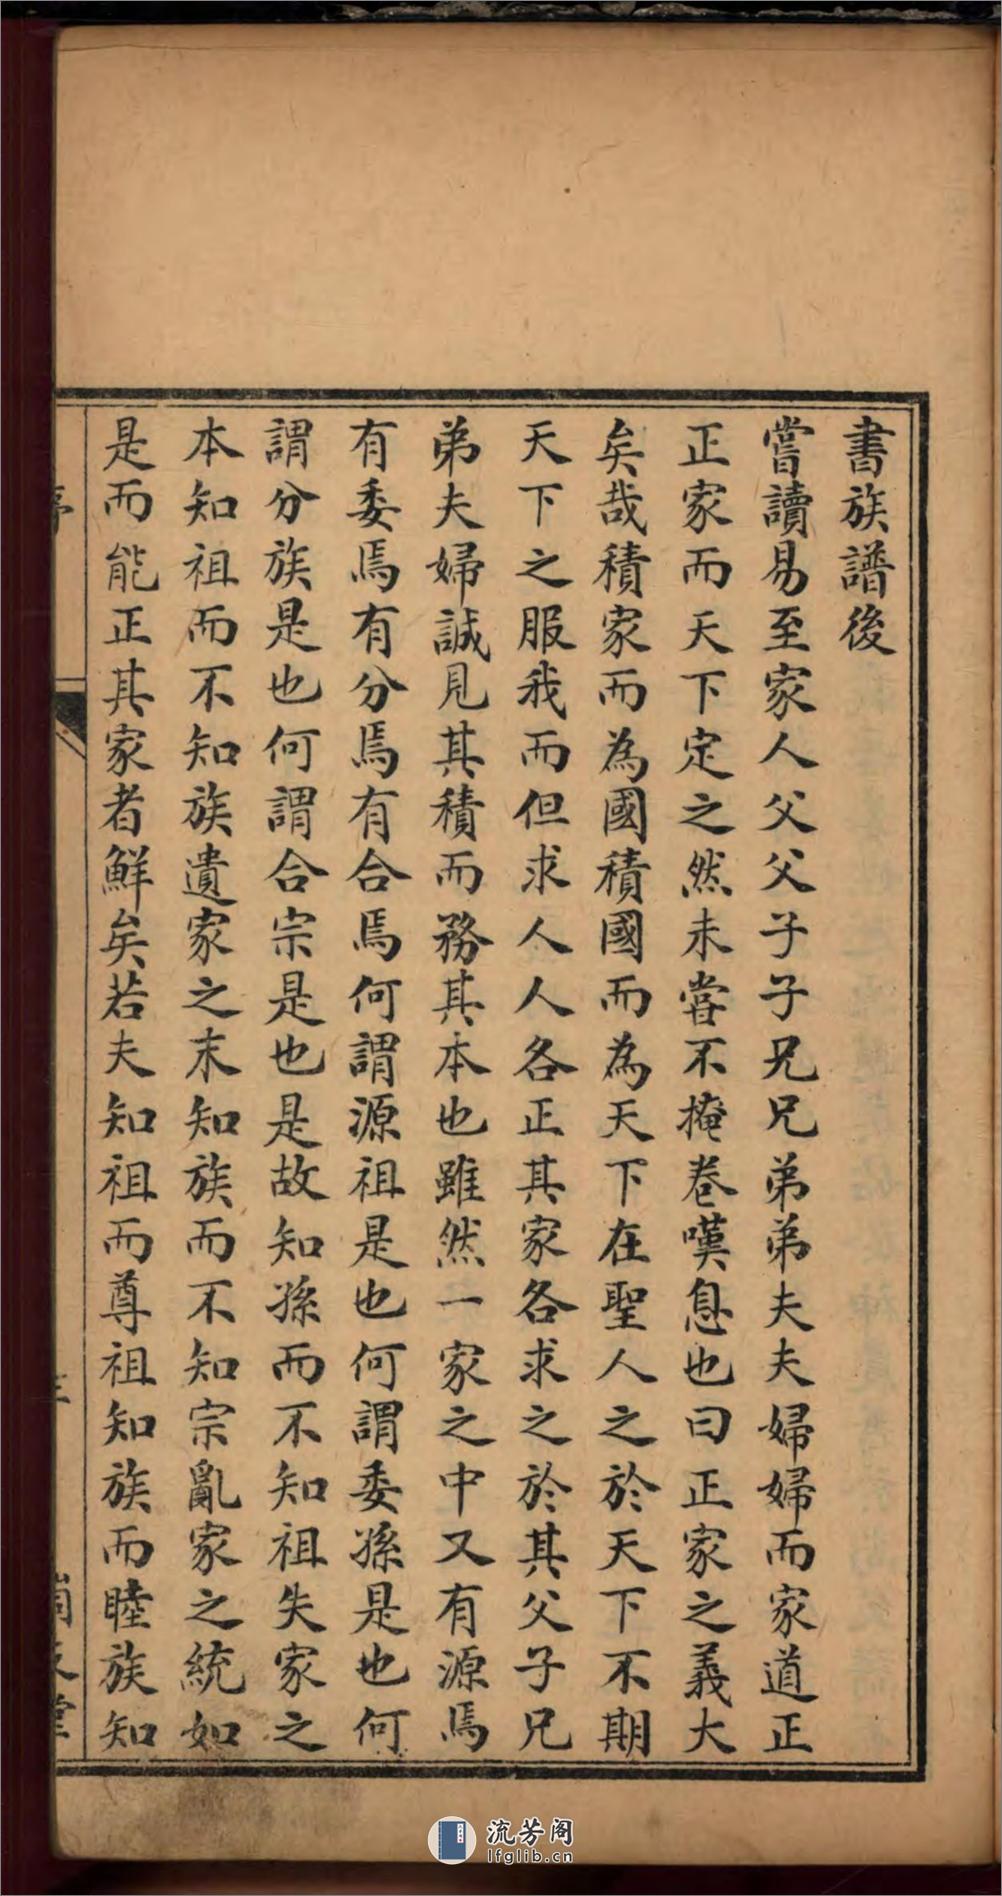 書族譜後
嘗讀易至家人父父子子兄兄弟弟夫夫婦婦而家道正
正家而天下定之然未嘗不掩卷嘆息也曰正家之義大
矣哉積家而為國積國而為天下在聖人之於天下不期
天下之服我而但求人人各正其家各求之於其父子兄
弟夫婦誠見其積而務其本也雖然一家之中又有源焉
有委焉有分焉有合焉何謂源祖是也何謂委孫是也何
謂分族是也何謂合宗是也是故知孫而不知祖失家之
本知祖而不知族遺家之末知族而不知宗亂家之統如
是而能正其家者鮮矣若夫知祖而尊祖知族而睦族知
流芳阁
lfglib.cn